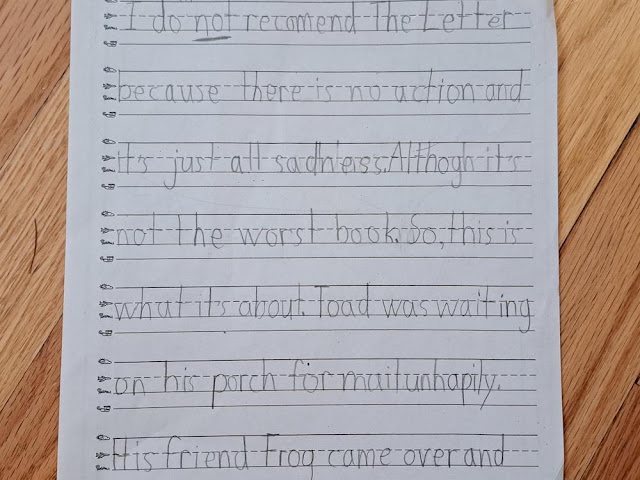 I do not recomend the Letter
because there is no action and
it's just all sadness. Althogh it's
not the worst book. So, this is
what it's about. Toad was waiting
on his porch for mail unhapily.
His friend Frog came over and